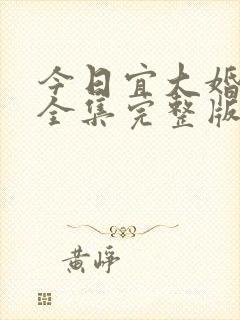 今日宜大婚
全集完整版
黄峥